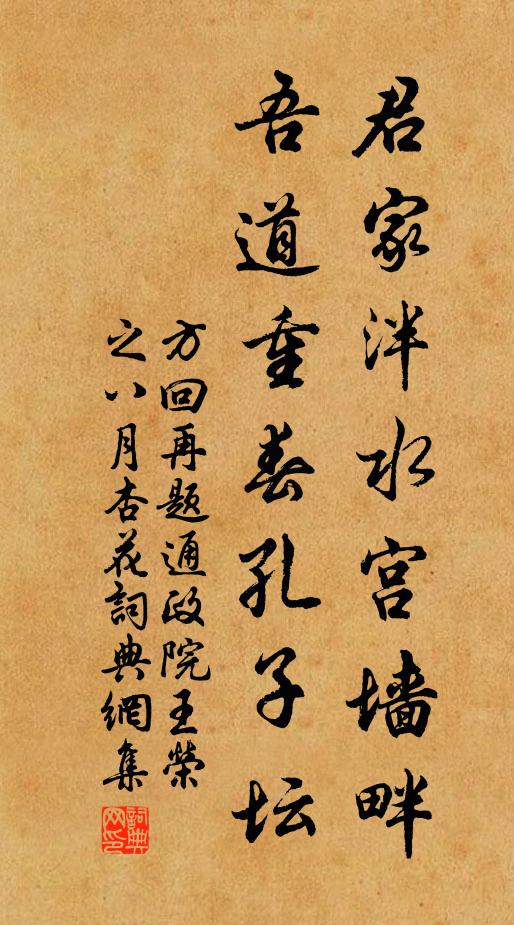 君家泮水宫墙畔
吾道重春孔子坛
方回再题通政院王荣
之八月杏花詞典網集
詞典
网印